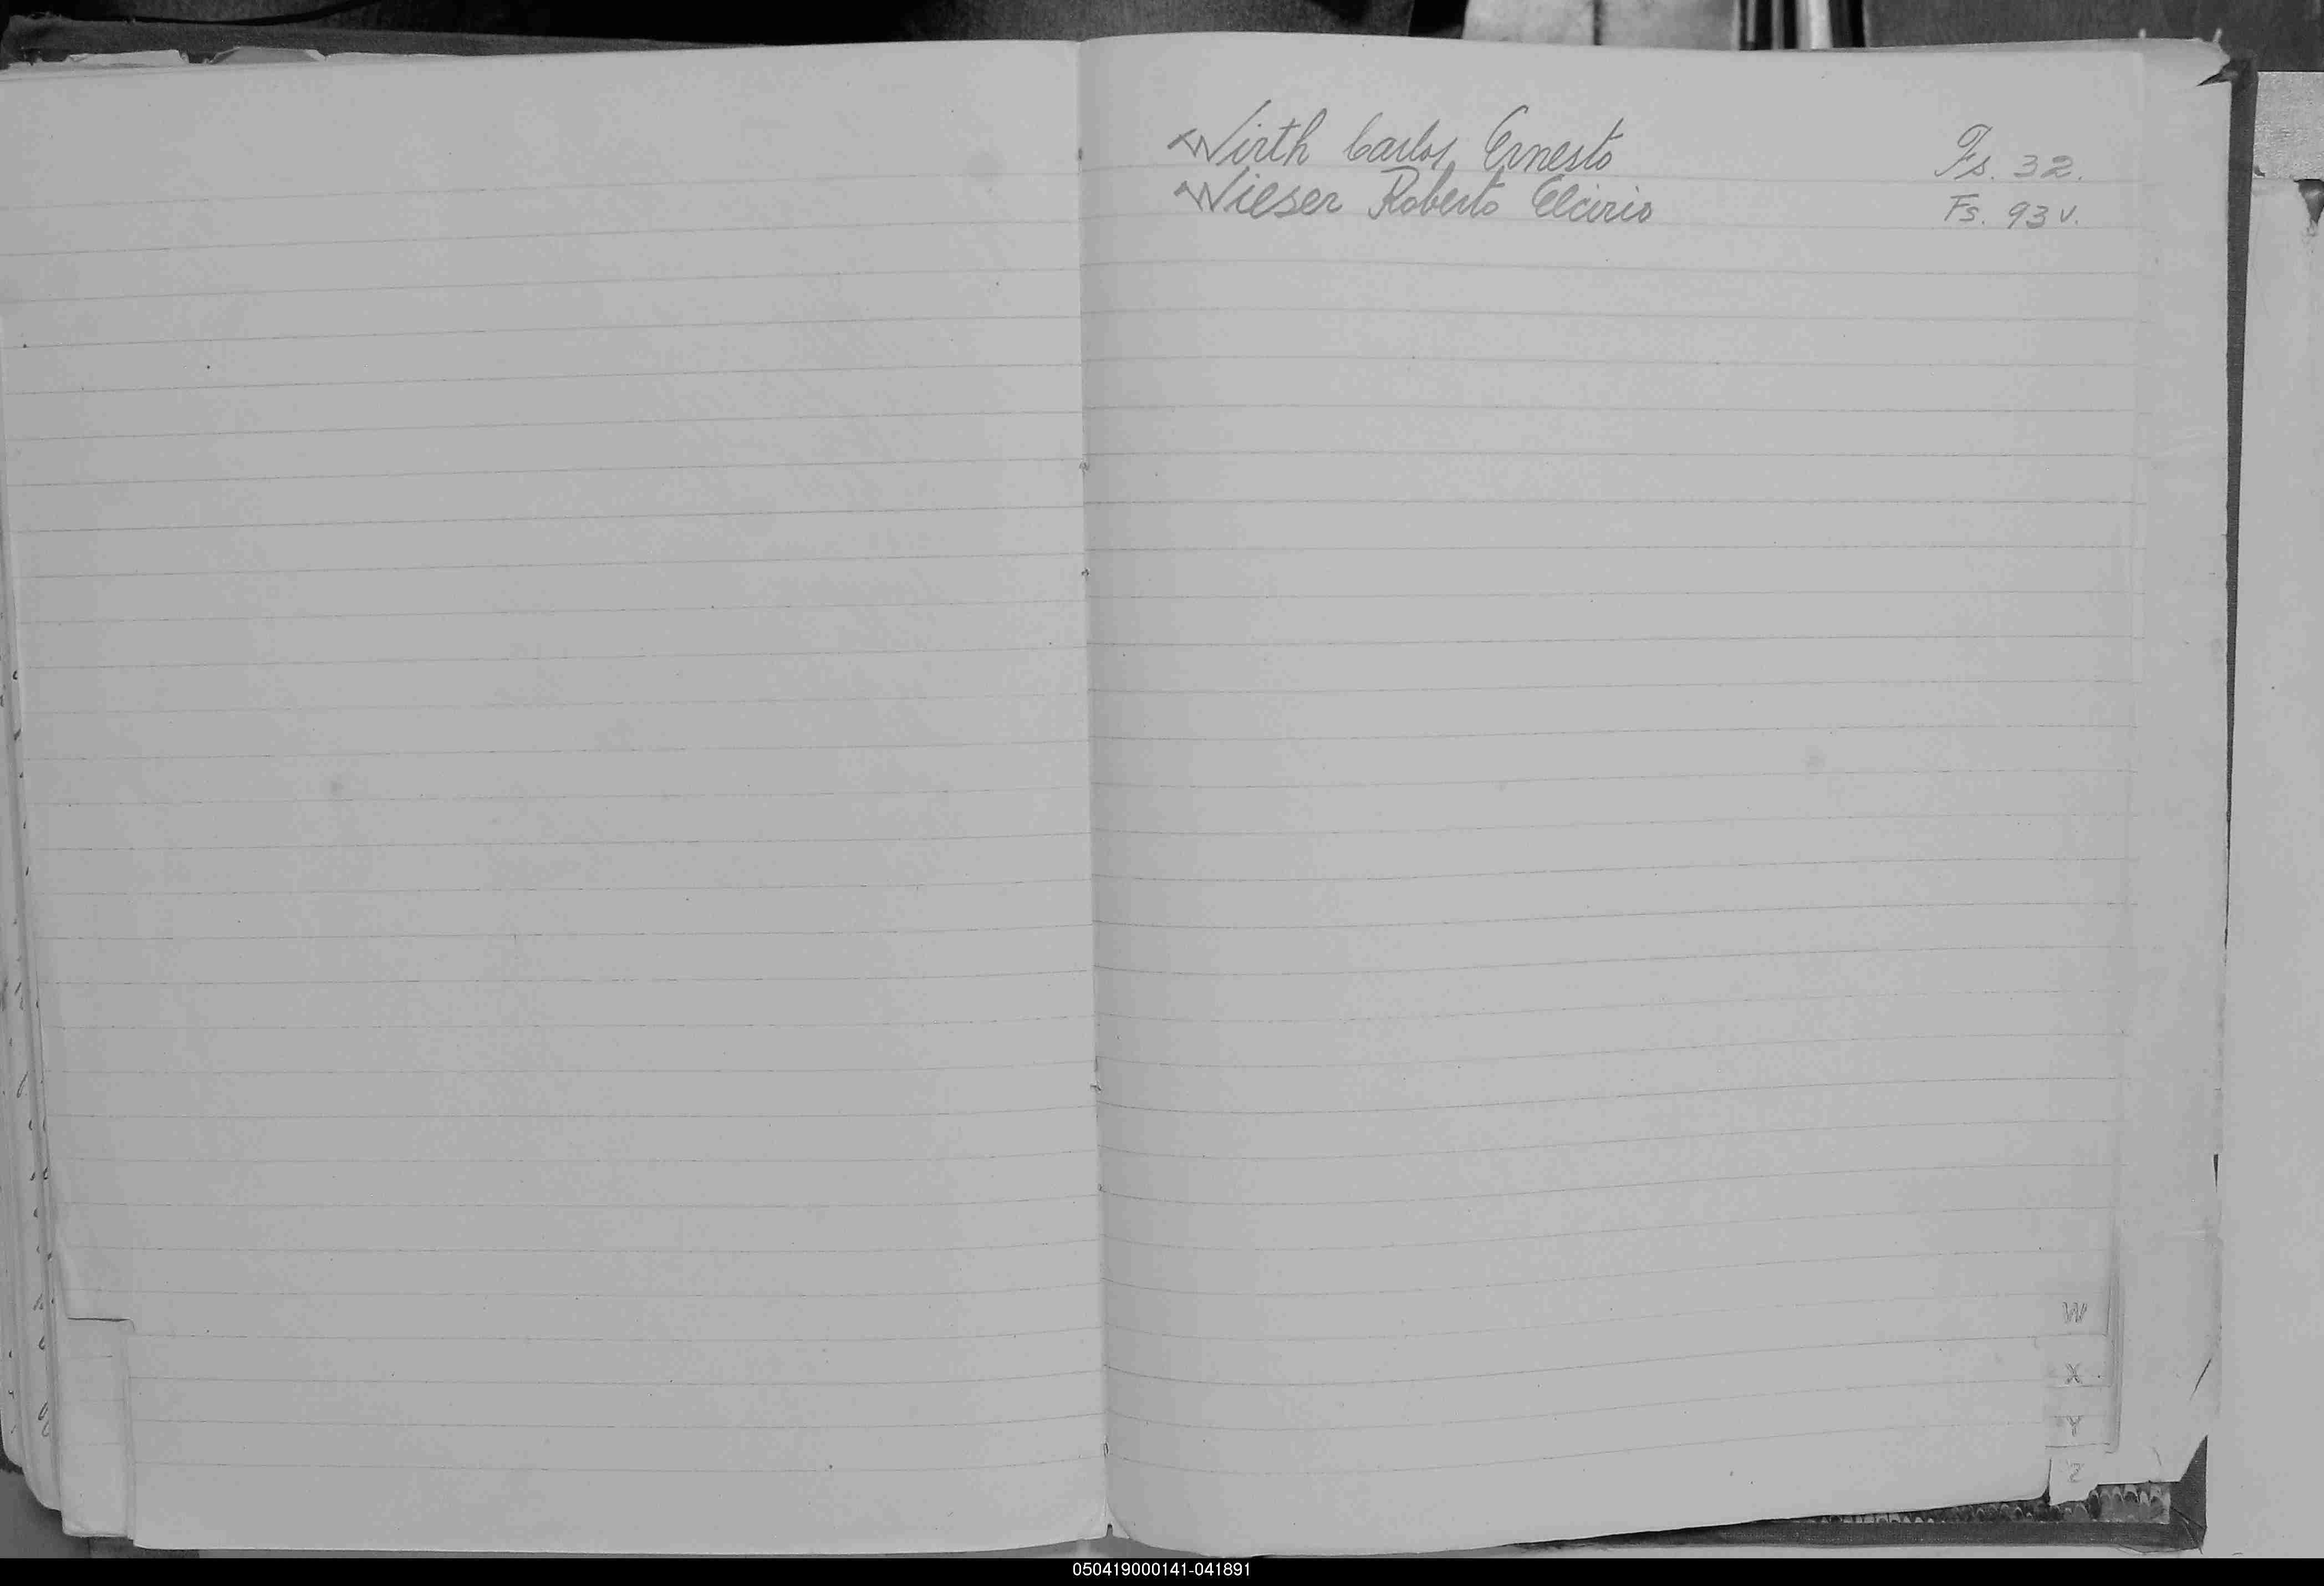 Wirth Carlos Ernesto Fs. 32.
Wieser Roberto Elcirio Fs. 93 v.
W
X
Y
Z
050419000141-041891